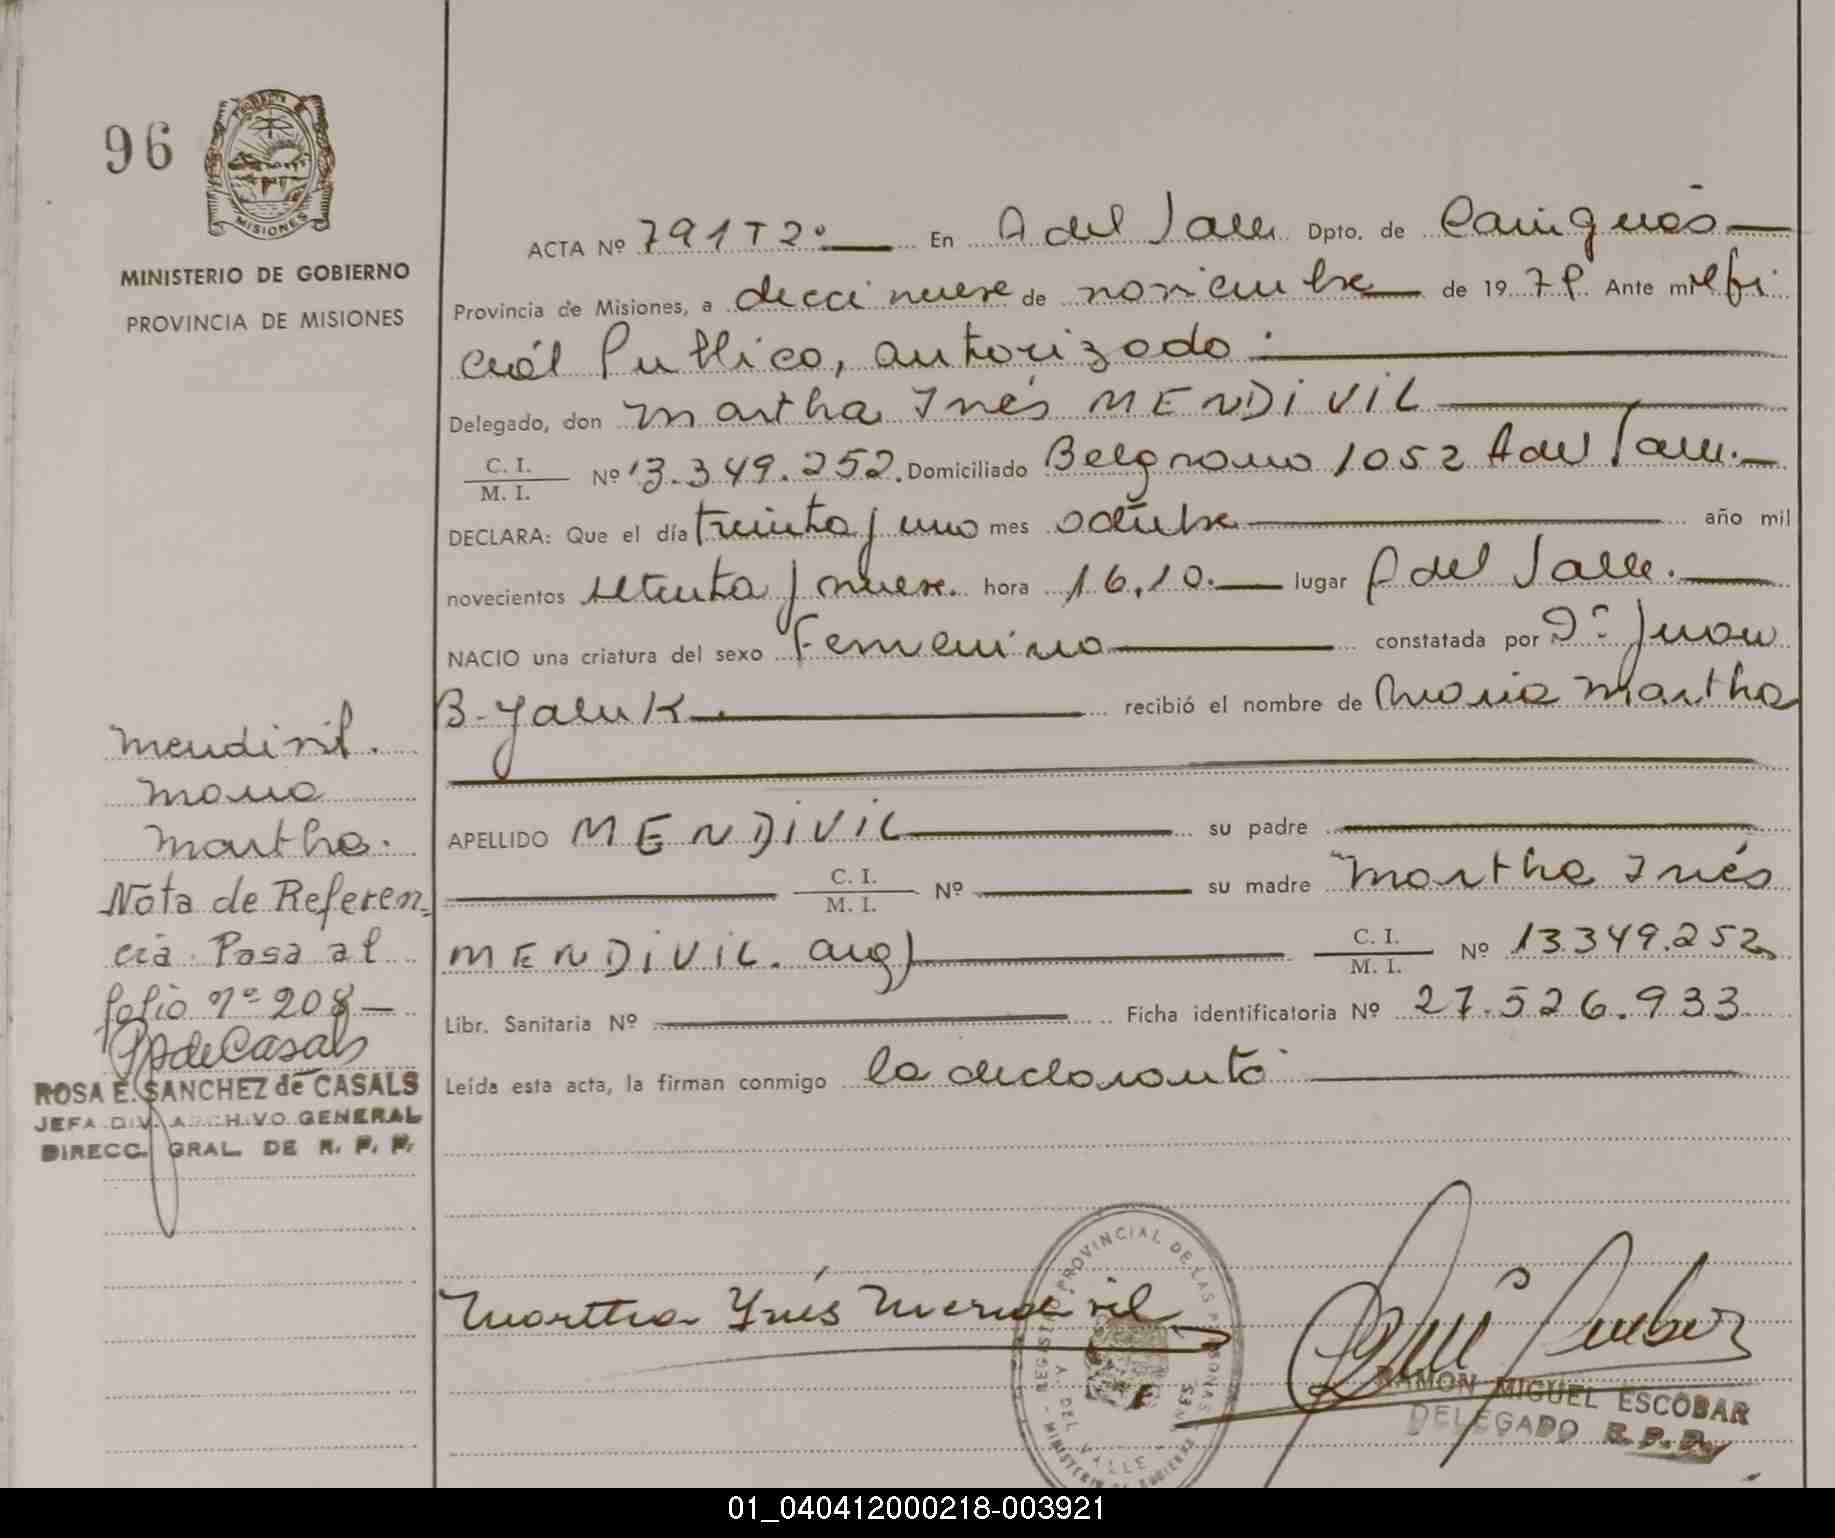 96
MISIONES
MINISTERIO DE GOBIERNO
PROVINCIA DE MISIONES
ACTA Nº 791 T 2º En A del Valle Dpto. de Cainguás
Provincia de Misiones, a diecinueve de noviembre de 1979 Ante mi Ofi
cial Publico, autorizado
Delegado, don Martha Inés MENDIVIL
C. I.
M. I. Nº 13.349.252. Domiciliado Belgrano 1052 A del Valle.
DECLARA: Que el día treinta y uno mes octubre año mil
novecientos setenta y nueve. hora 16,10. lugar A del Valle.
NACIO una criatura del sexo Femenino constatada por Dr. Juan
B. Yaluk recibió el nombre de Maria Martha
APELLIDO MENDIVIL su padre
C. I.
M. I. Nº su madre Martha Inés
MENDIVIL. arg) C. I.
M. I. Nº 13.349.252
Libr. Sanitaria Nº Ficha identificatoria Nº 27.526.933
Leída esta acta, la firman conmigo la declarante
Mendivil.
Maria
Martha.
Nota de Referen-
cia. Pasa al
folio nº 208
ROSA E. SANCHEZ de CASALS
JEFA DIV. ARCHIVO GENERAL
DIRECC. GRAL. DE R. P. P.
Martha Ynés Mendivil
REGISTRO PROVINCIAL DE LAS PERSONAS
A. DEL VALLE
MINISTERIO DE GOBIERNO
RAMON MIGUEL ESCOBAR
DELEGADO R. P. P.
01_040412000218-003921